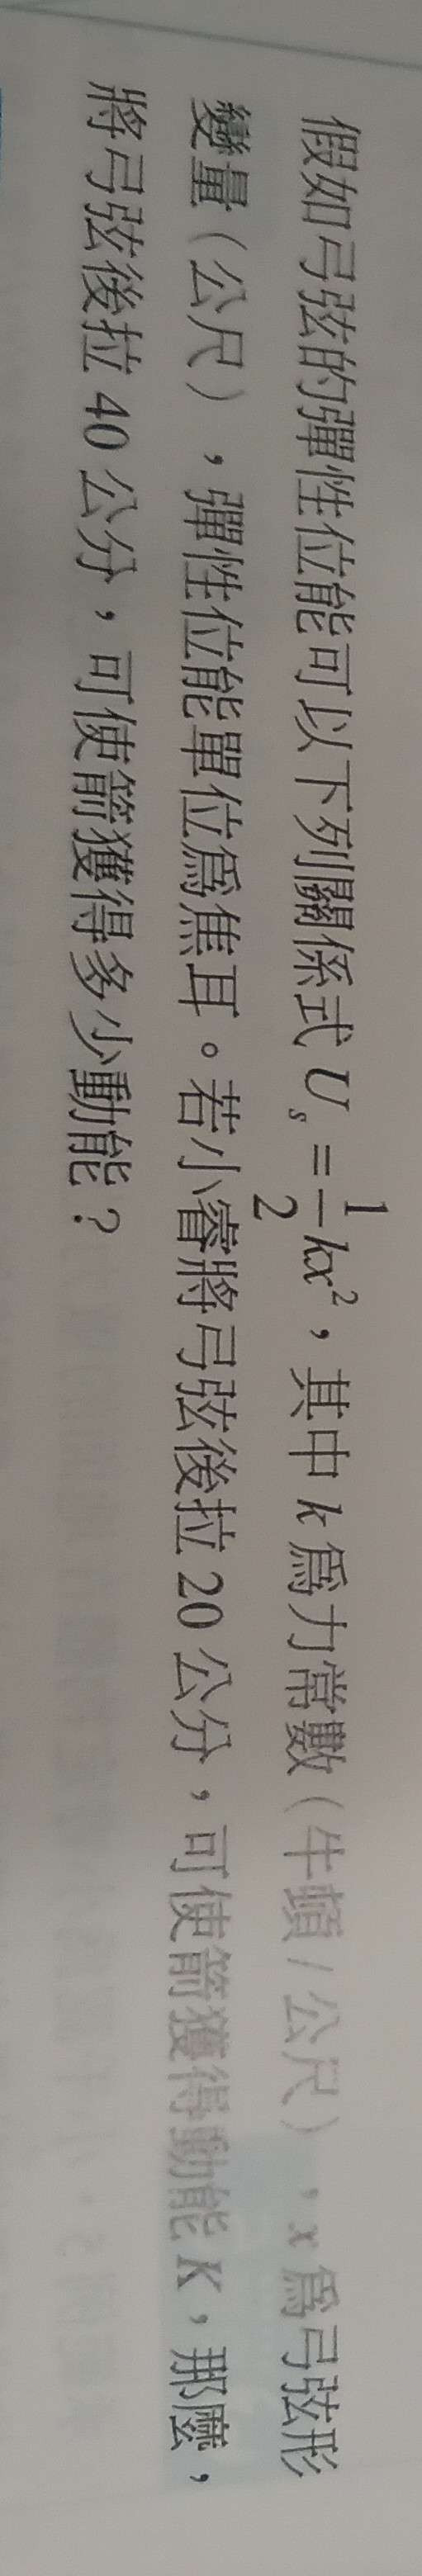 假如弓弦的彈性位能可以下列關係式 Uₛ = 1/2 kx²，其中 k 為力常數（牛頓 / 公尺），x 為弓弦形
變量（公尺），彈性位能單位為焦耳。若小睿將弓弦後拉 20 公分，可使箭獲得動能 K，那麼，
將弓弦後拉 40 公分，可使箭獲得多少動能？